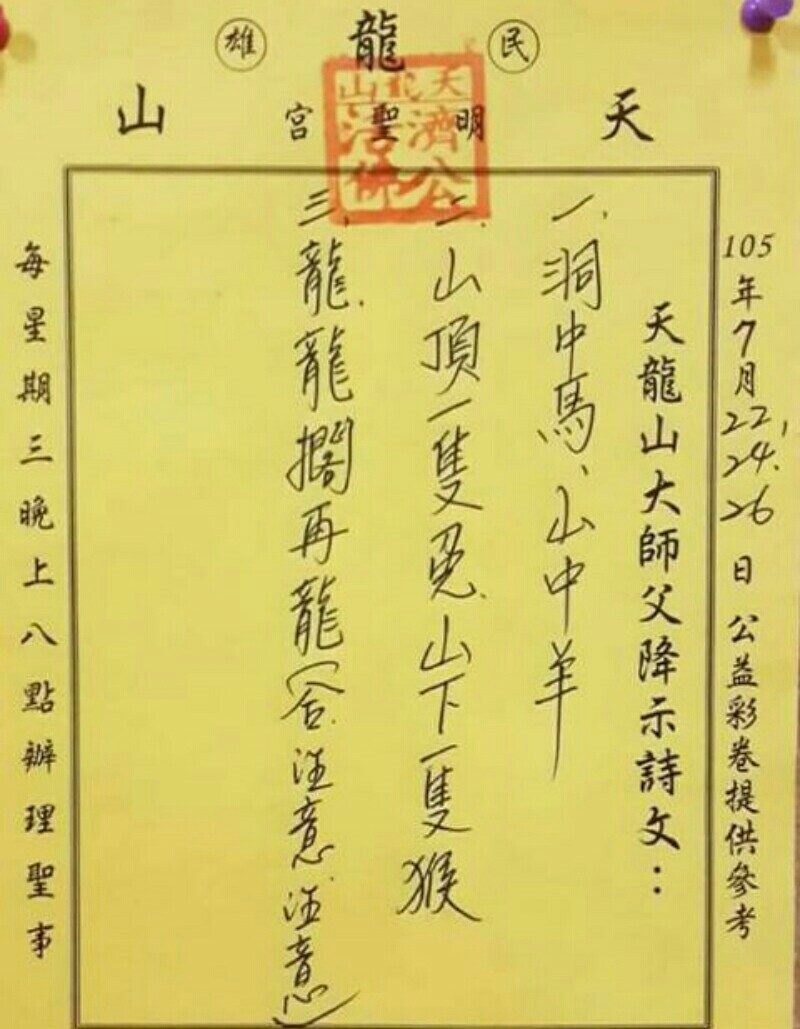 民 龍 雄
天 明聖宮 山
濟公
活佛
105年7月22,24.26日公益彩卷提供參考
天龍山大師父降示詩文：
一、洞中馬、山中羊
二、山頂一隻兔.山下一隻猴
三、龍.龍擱再龍(合.注意注意)
每星期三晚上八點辦理聖事